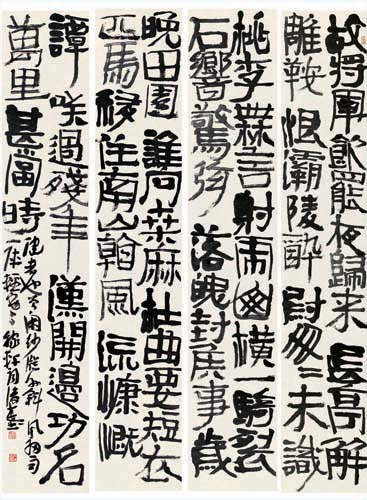 故將軍飲罷夜歸来長亭解
雕鞍恨灞陵醉尉匆匆未識
桃李無言射虎山橫一騎裂
石響驚弦落魄封侯事歲
晚田園誰向桑麻杜曲要短衣
匹馬移住南山看風流慷慨
譚咲過殘年漢開邊功名
萬里甚當時
健者也曾閑紗窗外斜風細雨
一陣輕寒